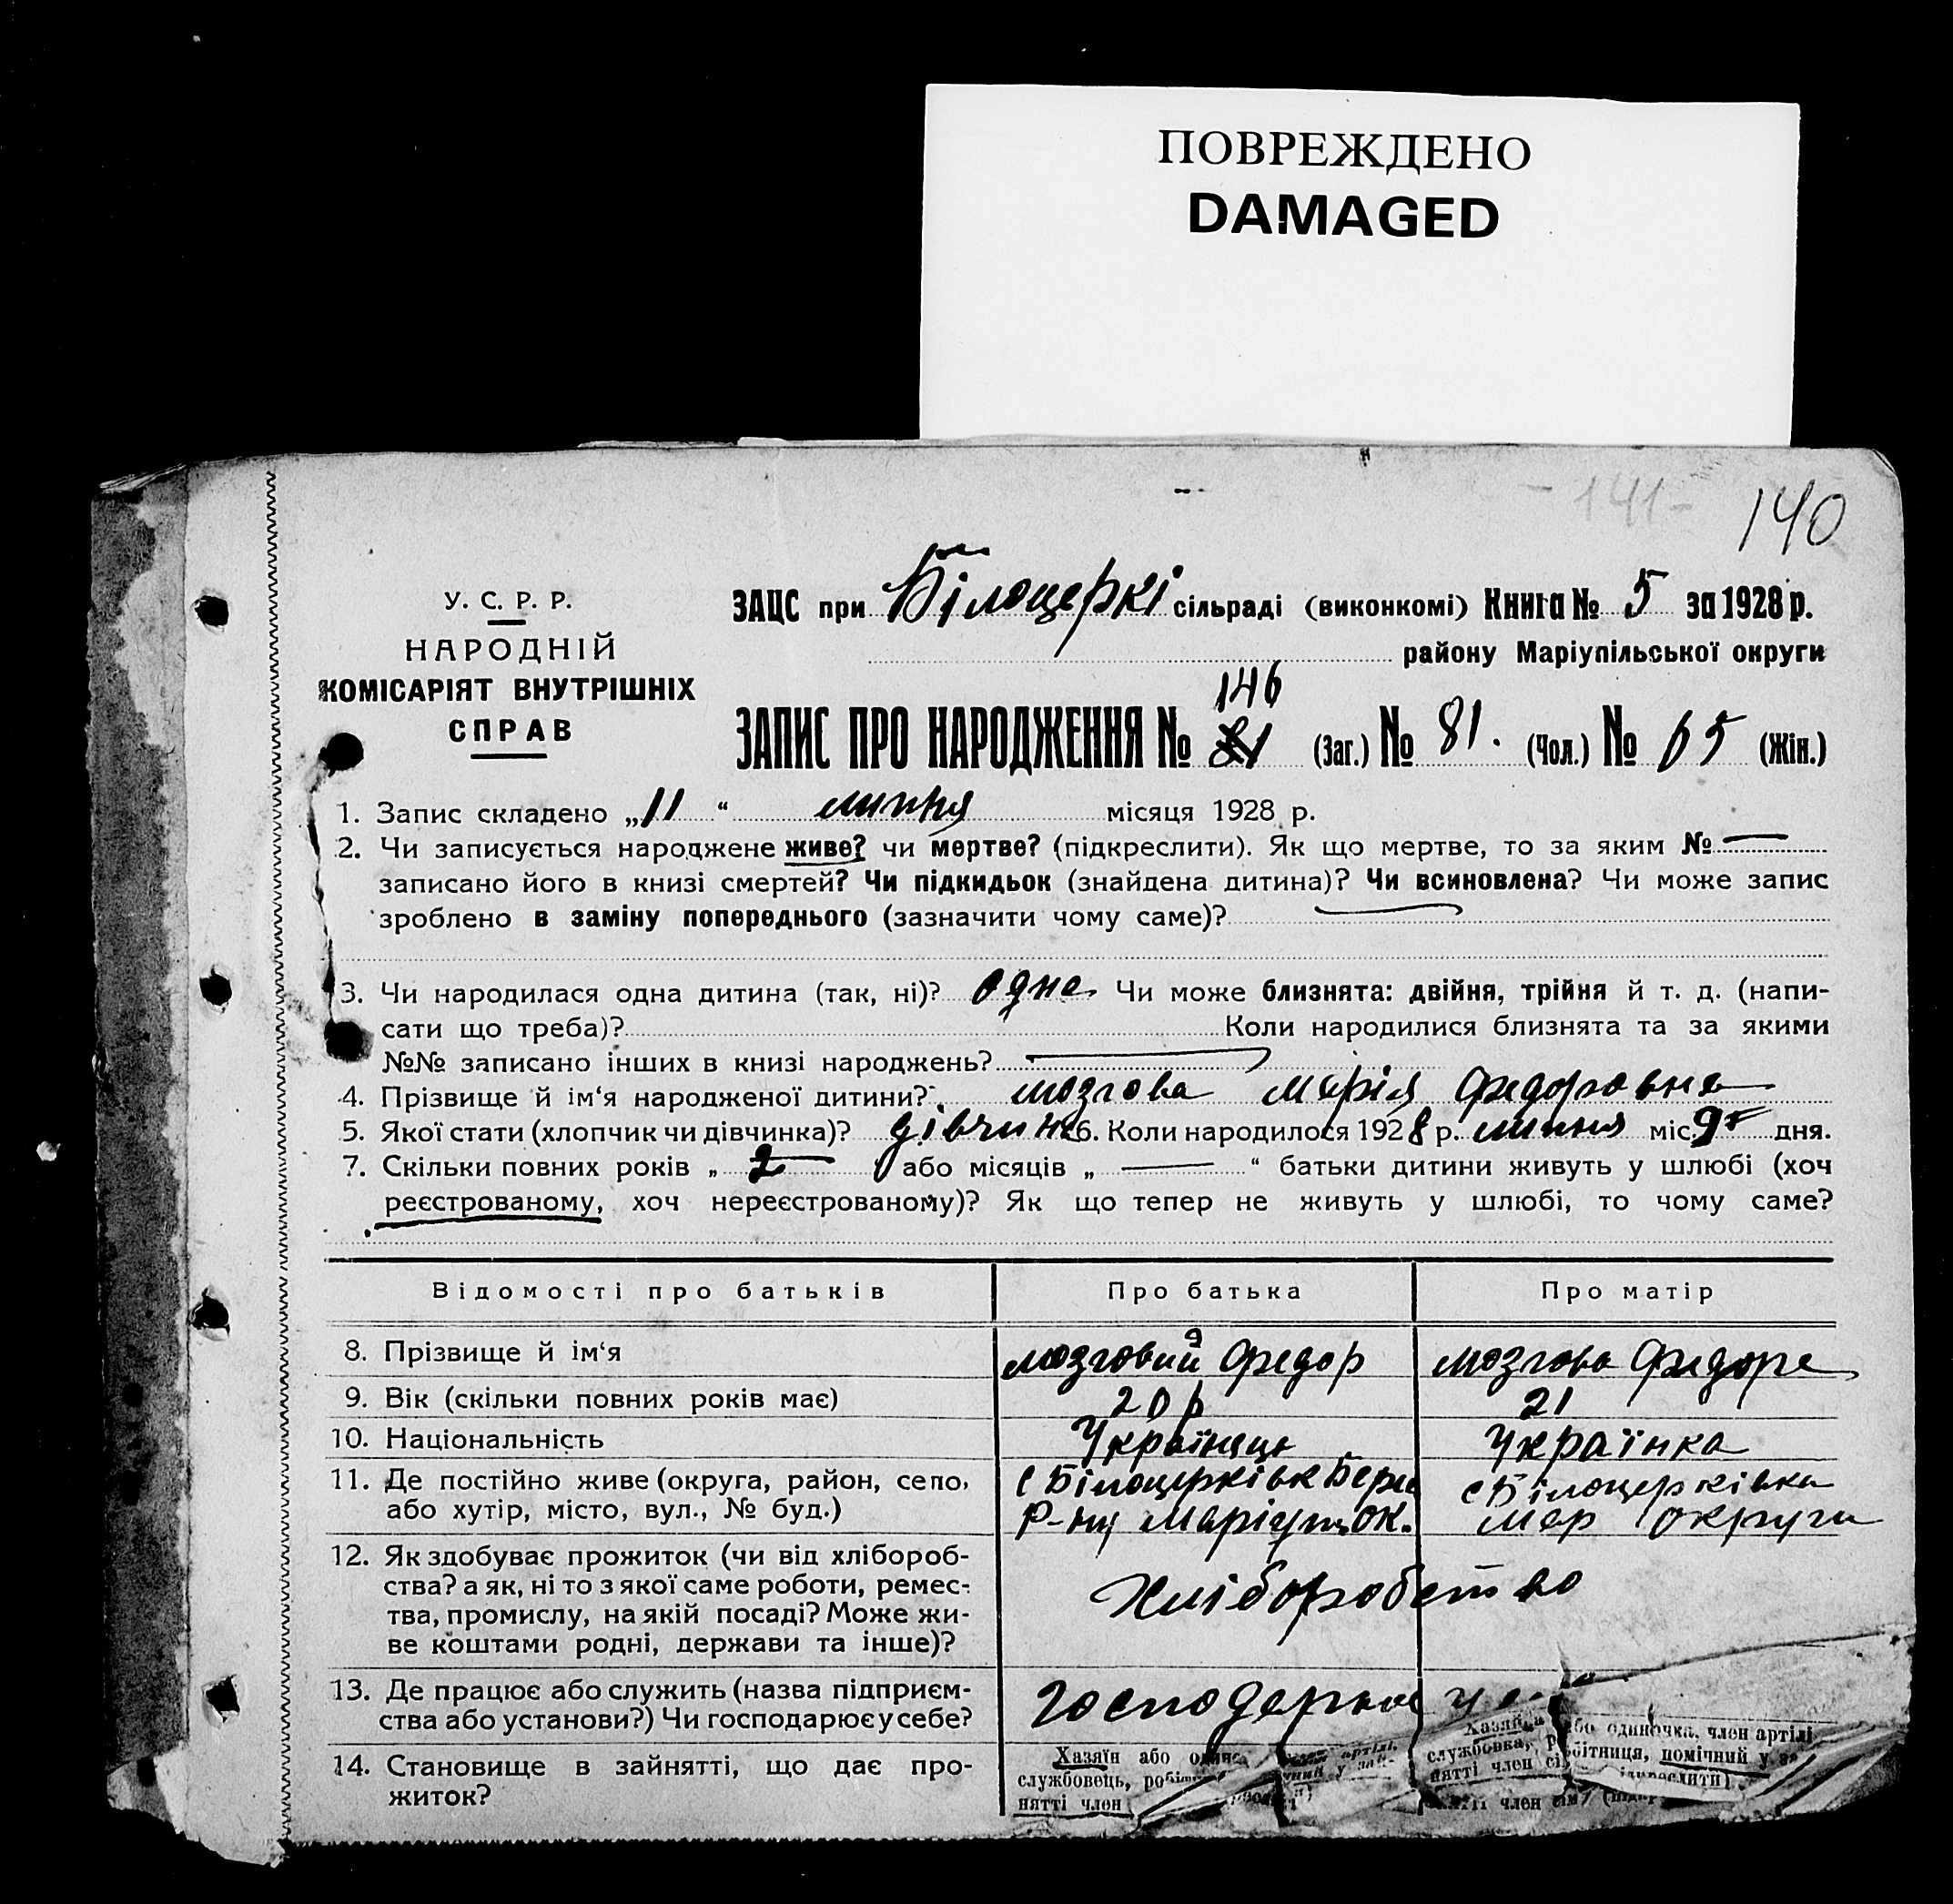 ПОВРЕЖДЕНО
DAMAGED
-141-
140
У. С. Р. Р.
НАРОДНІЙ
КОМІСАРІЯТ ВНУТРІШНІХ
СПРАВ
ЗАЦС при Білоцеркі сільраді (виконкомі) Книга № 5 за 1928 р.
району Маріупільської округи
146
ЗАПИС ПРО НАРОДЖЕННЯ № 81 (Заг.) № 81. (Чол.) № 65 (Жін.)
1. Запис складено „11“ липня місяця 1928 р.
2. Чи записується народжене живе? чи мертве? (підкреслити). Як що мертве, то за яким №
записано його в книзі смертей? Чи підкидьок (знайдена дитина)? Чи всиновлена? Чи може запис
зроблено в заміну попереднього (зазначити чому саме)?
3. Чи народилася одна дитина (так, ні)? одна Чи може близнята: двійня, трійня й т. д. (напи-
сати що треба)? Коли народилися близнята та за якими
№№ записано інших в книзі народжень?
4. Прізвище й ім‘я народженої дитини? Мозгова Марія Федоровна
5. Якої стати (хлопчик чи дівчинка)? дівчинка 6. Коли народилося 1928 р. липня міс. 9 дня.
7. Скільки повних років „ 2 або місяців „ — “ батьки дитини живуть у шлюбі (хоч
реєстрованому, хоч нереєстрованому)? Як що тепер не живуть у шлюбі, то чому саме?
Відомості про батьків Про батька Про матір
8. Прізвище й ім‘я Мозговий Федор Мозгова Федора
9. Вік (скільки повних років має) 20 р 21
10. Національність Українець Українка
11. Де постійно живе (округа, район, село, с Білоцерківк Берд с Білоцерківка
або хутір, місто, вул., № буд.) Р-ну Маріуп. ок. Мар округи
12. Як здобуває прожиток (чи від хлібороб-
ства? а як, ні то з якої саме роботи, ремес- Хліборобство
тва, промислу, на якій посаді? Може жи-
ве коштами родні, держави та інше)?
13. Де працює або служить (назва підприєм-
ства або установи?) Чи господарює у себе? Господарює у
14. Становище в зайнятті, що дає про-
житок?
Хазяїн або
службовець,
нятті член
Хазяйка або одиночка, член артілі
службовка, робітниця, помічний у
нятті член